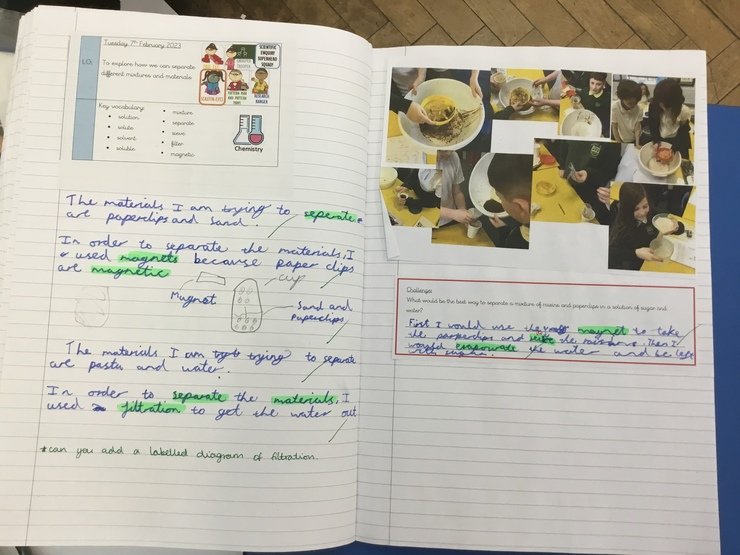 Tuesday 7th February 2023
L.O.
To explore how we can separate
different mixtures and materials
SCIENTIFIC
ENQUIRY
SUPERHERO
SQUAD
Key vocabulary:
solution
solute
solvent
soluble
mixture
separate
sieve
filter
magnetic
Chemistry
The materials I am trying to seperate
are paperclips and sand.
In order to separate the materials, I
used magnets because paper clips
are magnetic
cup
Magnet
Sand and
Paperclips
The materials I am trying to separate
are pasta and water.
In order to separate the materials, I
used filtration to get the water out
*can you add a labelled diagram of filtration.
Challenge:
What would be the best way to separate a mixture of raisins and paperclips in a solution of sugar and
water?
First I would use the magnet to take
the paperclips and the Then I
would evaporate the water and be left
with sugar.